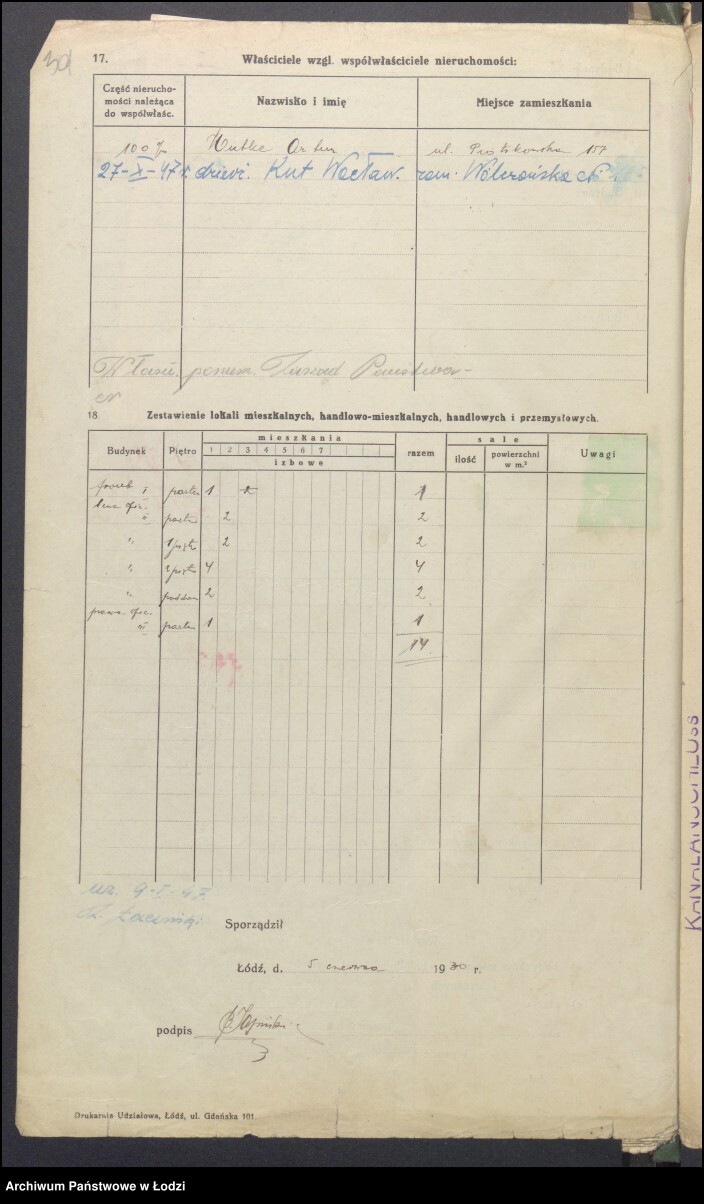 30
17. Właściciele wzgl. współwłaściciele nieruchomości:
Część nierucho-
mości należąca
do współwłaśc.
Nazwisko i imię
Miejsce zamieszkania
100% Artur ul. Piotrkowska 157
27-X-47 r. dzierż. Kut Wacław. zam. Wólczańska
Własn. Zarząd Państwow-
18. Zestawienie lokali mieszkalnych, handlowo-mieszkalnych, handlowych i przemysłowych.
Budynek Piętro mieszkania razem sale Uwagi
1 2 3 4 5 6 7
izbowe
ilość powierzchni
w m.²
I parter 1 1
lewa ofic.
II parter 2 2
" 1 piętr 2 2
" 2 piętr 4 4
" poddasz 2 2
prawa ofic.
III parter 1 1
14
9-I-47.
Sporządził
Łódź, d. 5 czerwca 1930 r.
podpis
Drukarnia Udziałowa, Łódź, ul. Gdańska 101
KANALANSCHLUSS
Archiwum Państwowe w Łodzi